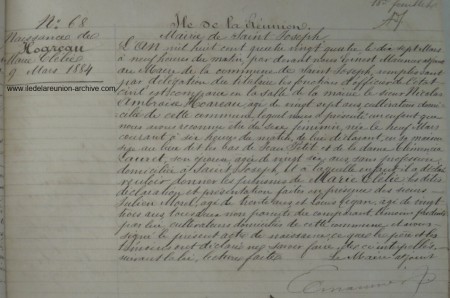 18e feuillet
N° 68
Naissance de
Hoareau
Marie Clélie
9 Mars 1884
Ile de la Réunion
Mairie de Saint Joseph
L'an mil huit cent quatre vingt quatre, le dix sept Mars
à neuf heures du matin, par devant nous Ernest adjoint
au Maire de la commune de Saint Joseph, remplissant
par délégation du titulaire les fonctions d'officier de l'état
civil est comparu en la salle de la mairie le sieur Nicolas
Ambroise Hoareau âgé de vingt sept ans cultivateur domi
cilié de cette commune, lequel nous a présenté un enfant que
nous avons reconnu du sexe féminin, née le neuf Mars
courant à six heures du matin, de lui déclarant en sa maison
sise au lieu dit les bas de Jean Petit et de la dame
Lauret, son épouse, âgée de vingt six ans sans profession
domiciliée à Saint Joseph, et à laquelle enfant il a déclaré
vouloir donner les prénoms de Marie Clélie. Lesdites
déclaration et présentation faites en présence des sieurs
Julien âgé de trente ans et Louis âgé de vingt
trois ans tous deux non parents du comparant témoins produits
par lui cultivateurs domiciliés de cette commune, et avons
signé le présent acte de naissance ce que le père et les
témoins ont déclaré ne savoir faire de ce interpellés,
suivant la loi, lecture faite. Le Maire adjoint
www.iledelareunion-archive.com